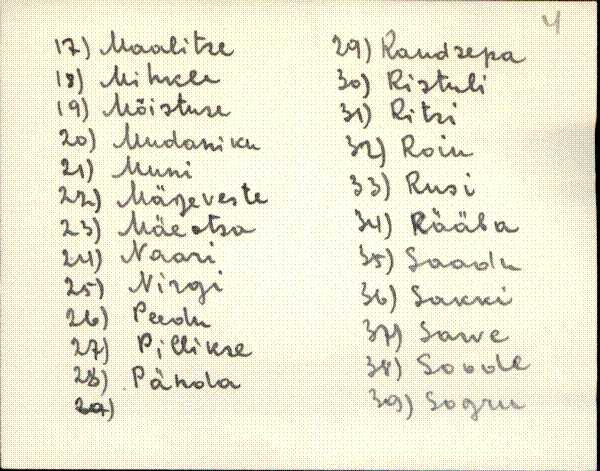 4
17) Maalitse
18) Mihkle
19) Mõistuse
20) Mudassiku
21) Muni
22) Mägeveste
23) Mäeotsa
24) Naari
25) Nirgi
26) Peedu
27) Pillikse
28) Pähola
29)
29) Raudsepa
30) Ristuli
31) Ritsi
32) Roiu
33) Rusi
34) Rääba
35) Saadu
36) Sakki
37) Sarve
38) Soode
39) Sogru